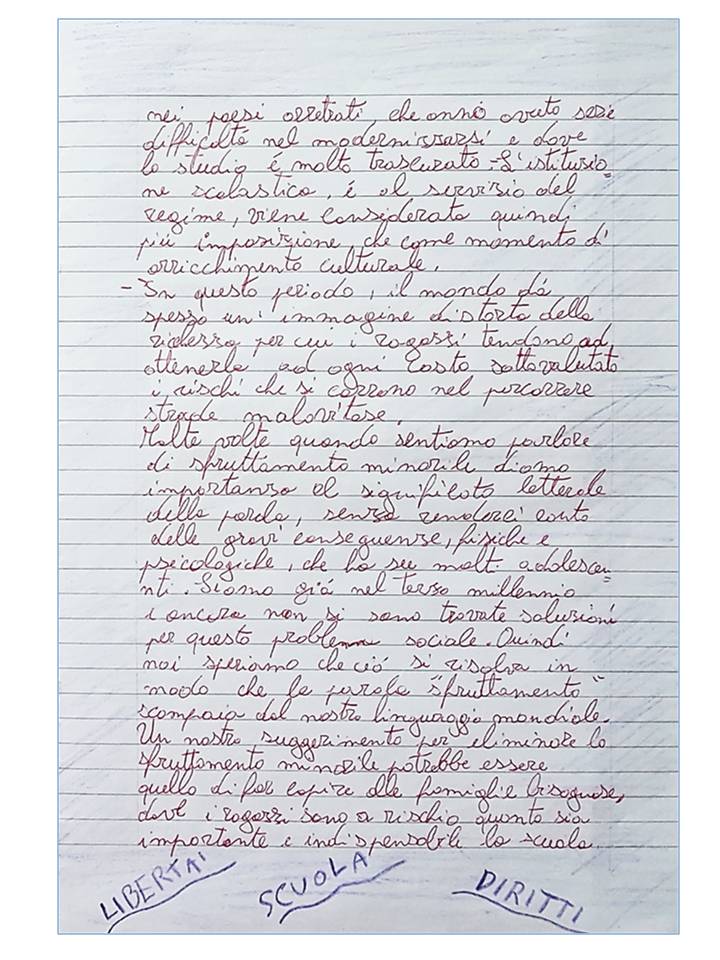 nei paesi arretrati, che anno avuto serie
difficoltá nel modernizzarsi e dove
lo studio é molto trascurato. L'istituzio=
ne scolastica, é al servizio del
regime, viene considerata quindi
piú imposizione, che come momento di
arricchimento culturale.
- In questo periodo, il mondo dá
spesso un' immagine distorta della
ricchezza per cui i ragazzi tendono ad
ottenerla ad ogni costo sottovalutato
i rischi che si corrono nel percorrere
strade malavitose.
Molte volte quando sentiamo parlare
di sfruttamento minorile diamo
importanza al significato letterale
della parola, senza renderci conto
delle gravi conseguenze, fisiche e
psicologiche, che ha su molti adolescen=
ti. Siamo giá nel terzo millennio
e ancora non si sono trovate soluzioni
per questo problema sociale. Quindi
noi speriamo che ció si risolva in
modo che la parola "sfruttamento"
scompaia dal nostro linguaggio mondiale.
Un nostro suggerimento per eliminare lo
sfruttamento minorile potrebbe essere
quello di far capire alle famiglie bisognose,
dove i ragazzi sono a rischio quanto sia
importante e indispensabile la scuola.
LIBERTA' SCUOLA DIRITTI